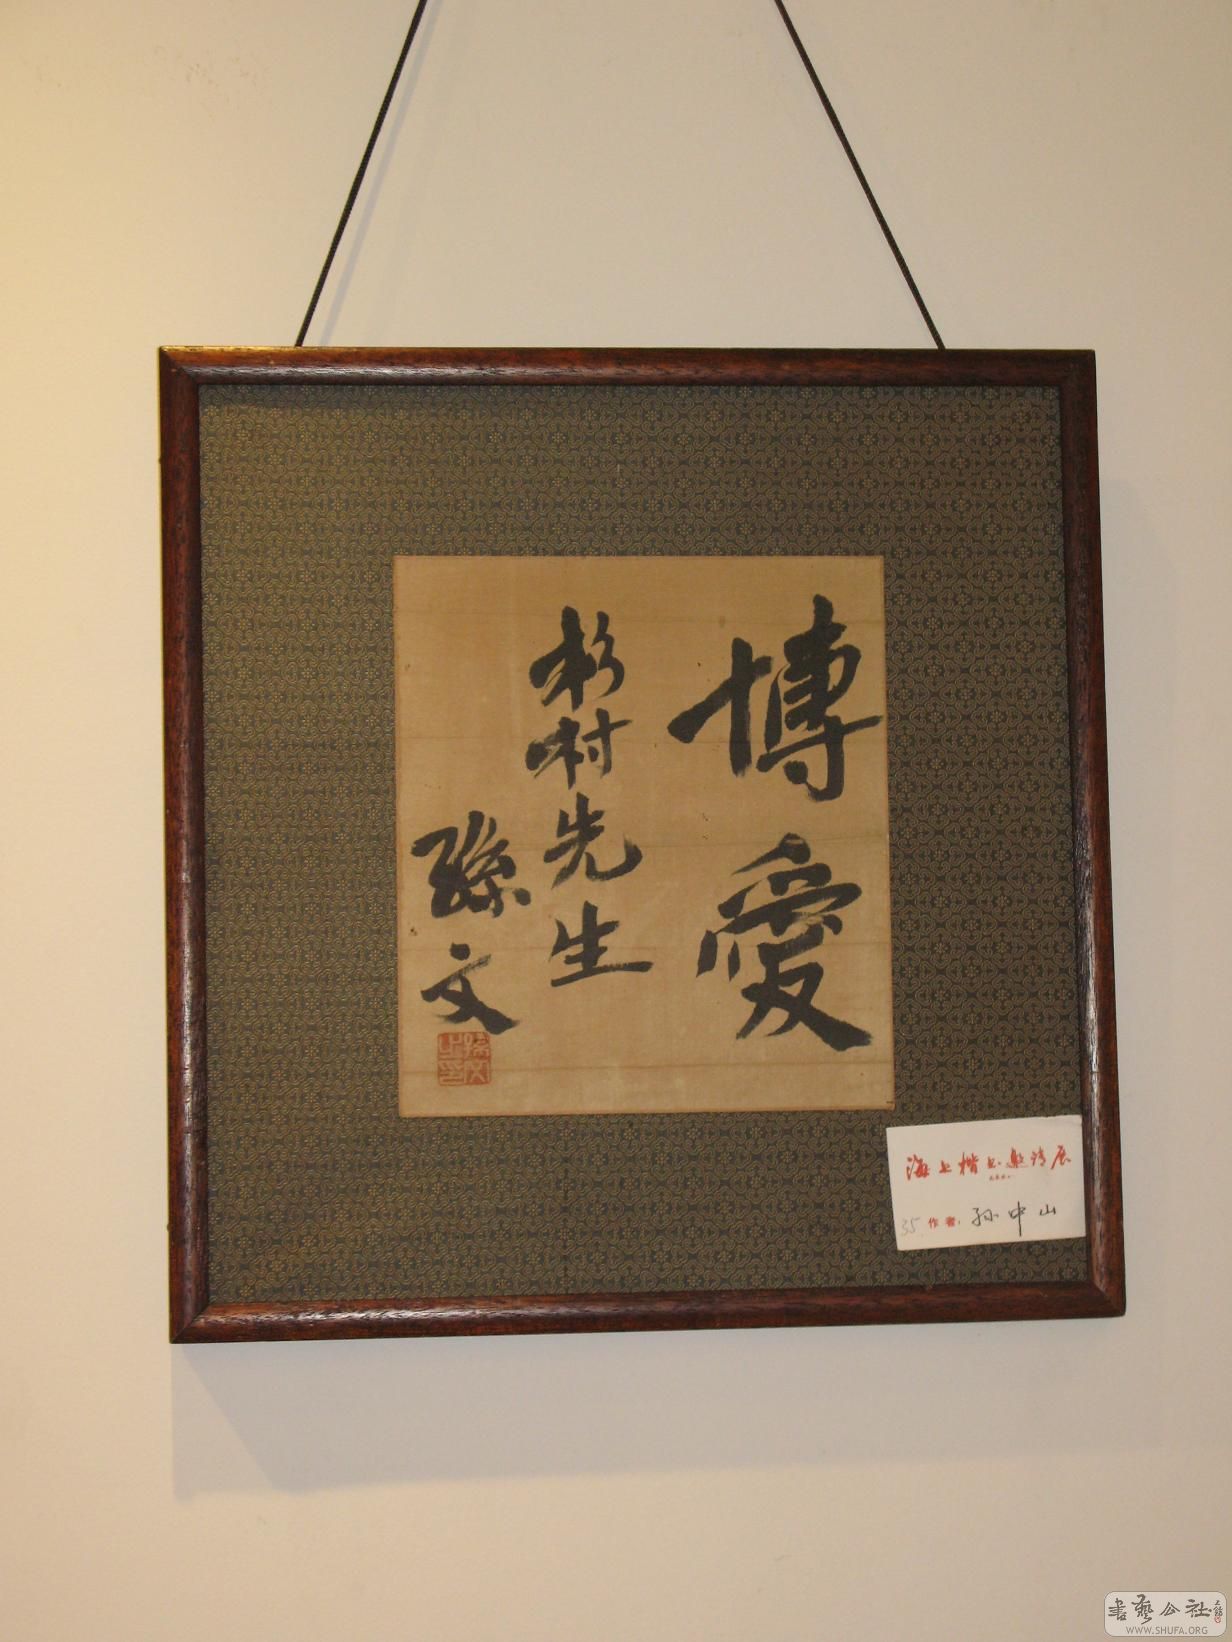 博愛
杉村先生
孫文
孫文之印
海上楷书邀请展
35 作者：孙中山
書藝公社
WWW.SHUFA.ORG